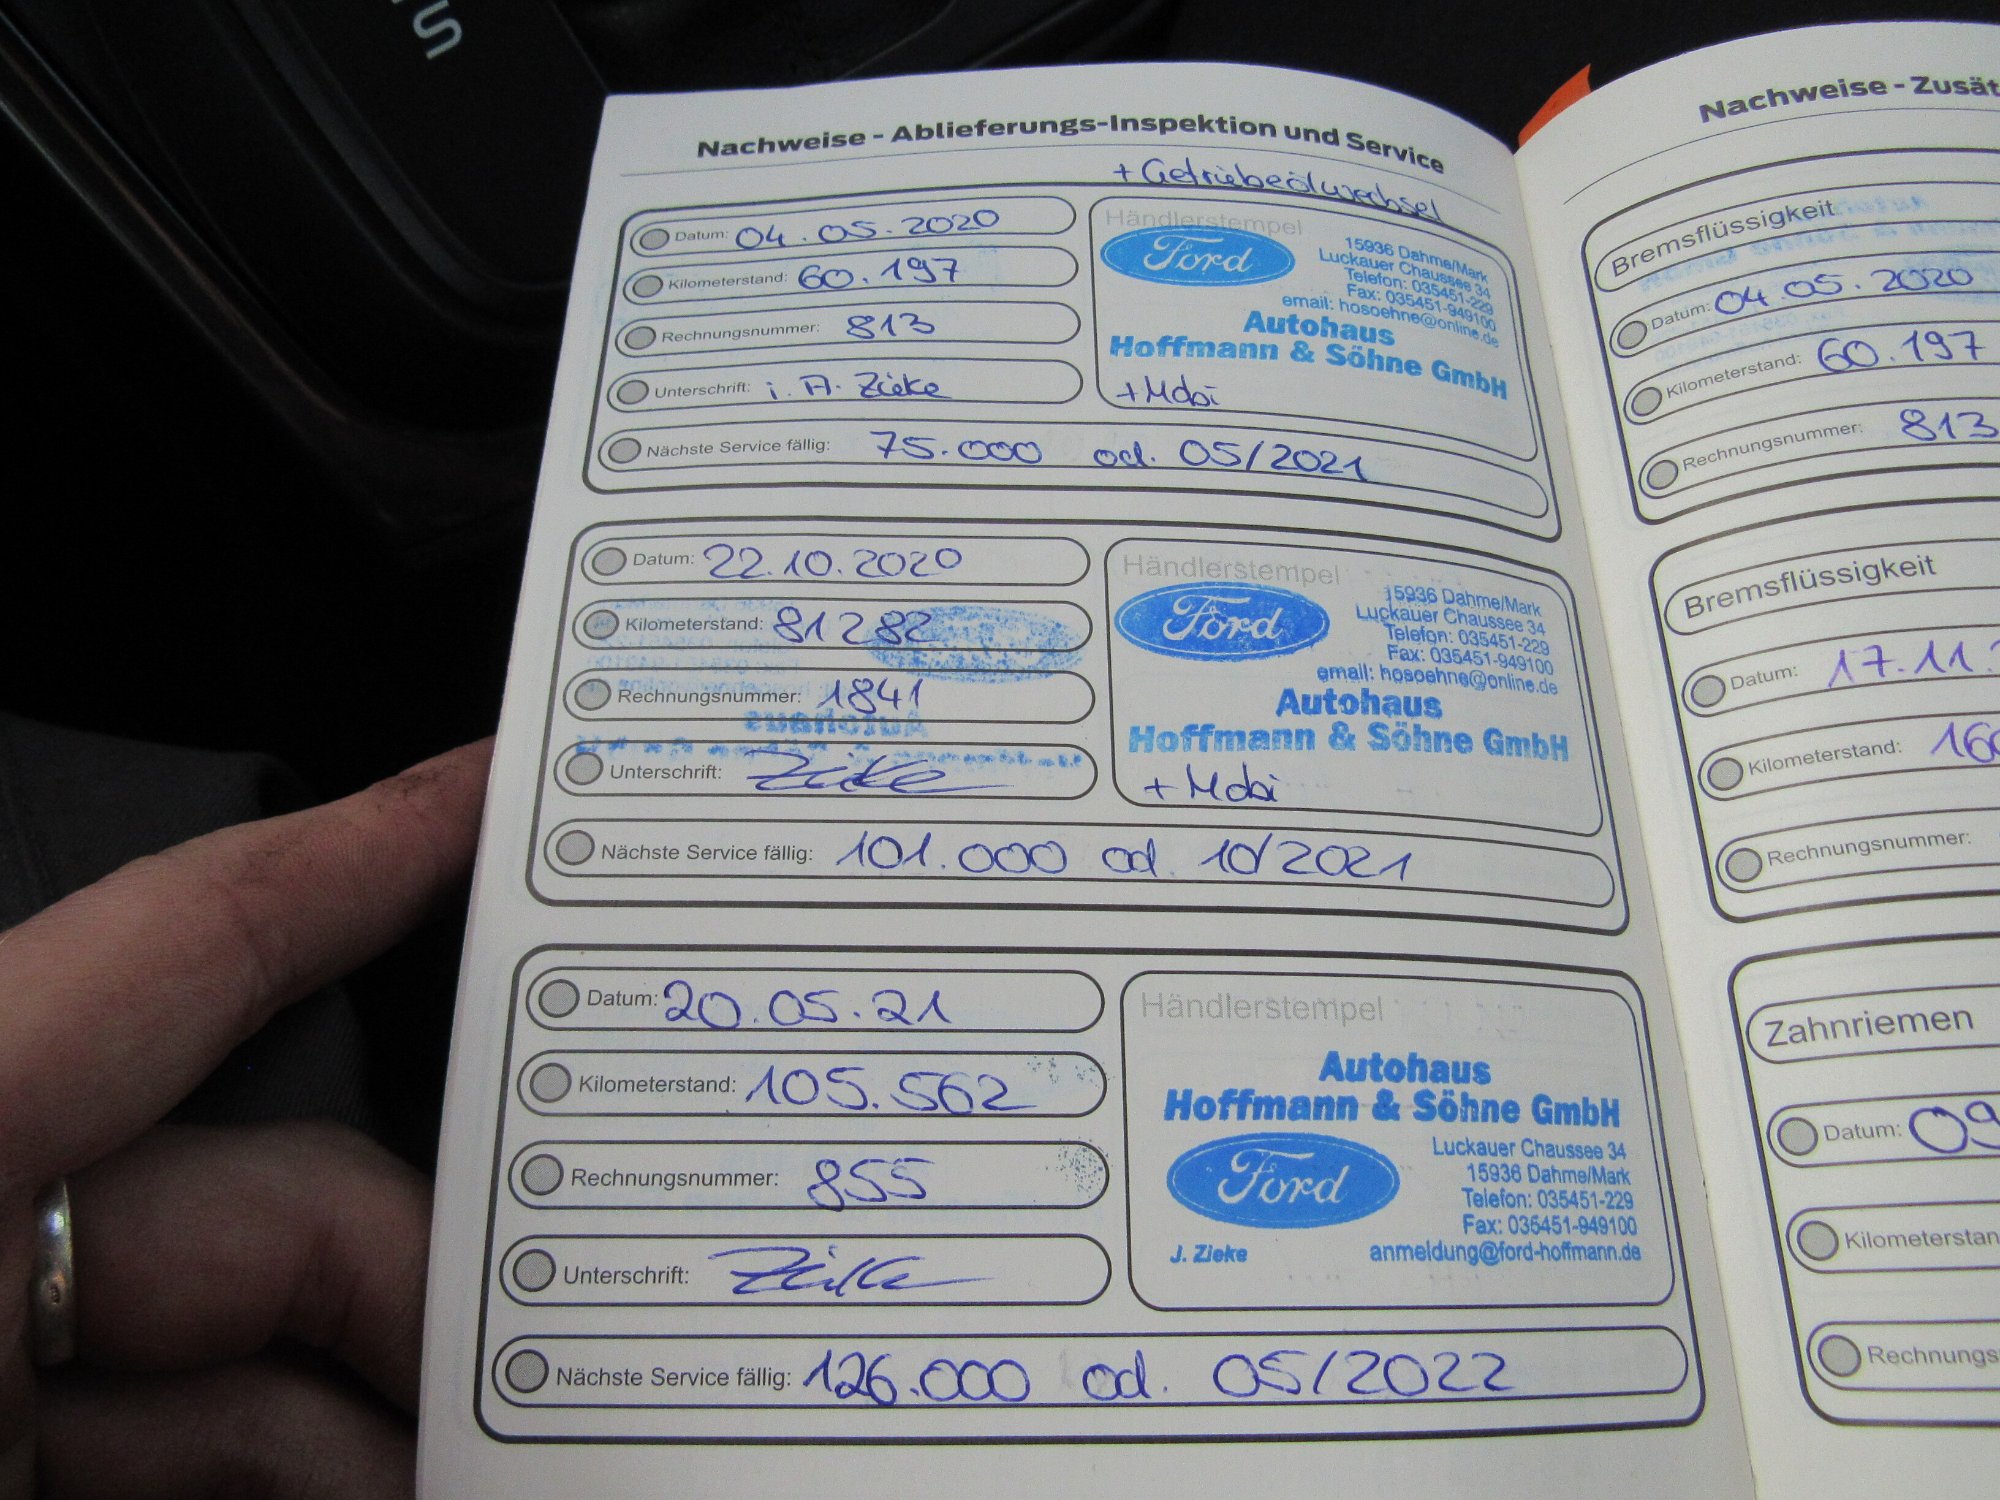 Nachweise - Ablieferungs-Inspektion und Service
+ Getriebeölwechsel
Datum: 04.05.2020
Kilometerstand: 60.197
Rechnungsnummer: 813
Unterschrift: i. A. Zieke
Händlerstempel
Ford
15936 Dahme/Mark
Luckauer Chaussee 34
Telefon: 035451-229
Fax: 035451-949100
email: hosoehne@online.de
Autohaus
Hoffmann & Söhne GmbH
+ Mobi
Nächste Service fällig: 75.000 od. 05/2021
Datum: 22.10.2020
Kilometerstand: 81282
Rechnungsnummer: 1841
Unterschrift: Zieke
Händlerstempel
Ford
15936 Dahme/Mark
Luckauer Chaussee 34
Telefon: 035451-229
Fax: 035451-949100
email: hosoehne@online.de
Autohaus
Hoffmann & Söhne GmbH
+ Mobi
Nächste Service fällig: 101.000 od. 10/2021
Datum: 20.05.21
Kilometerstand: 105.562
Rechnungsnummer: 855
Unterschrift: Zieke
Händlerstempel
Autohaus
Hoffmann & Söhne GmbH
Ford
Luckauer Chaussee 34
15936 Dahme/Mark
Telefon: 035451-229
Fax: 035451-949100
J. Zieke anmeldung@ford-hoffmann.de
Nächste Service fällig: 126.000 od. 05/2022
Nachweise - Zusät
Bremsflüssigkeit
Datum: 04.05.2020
Kilometerstand: 60.197
Rechnungsnummer: 813
Bremsflüssigkeit
Datum: 17.11.
Kilometerstand: 160
Rechnungsnummer:
Zahnriemen
Datum: 09
Kilometerstan
Rechnungs